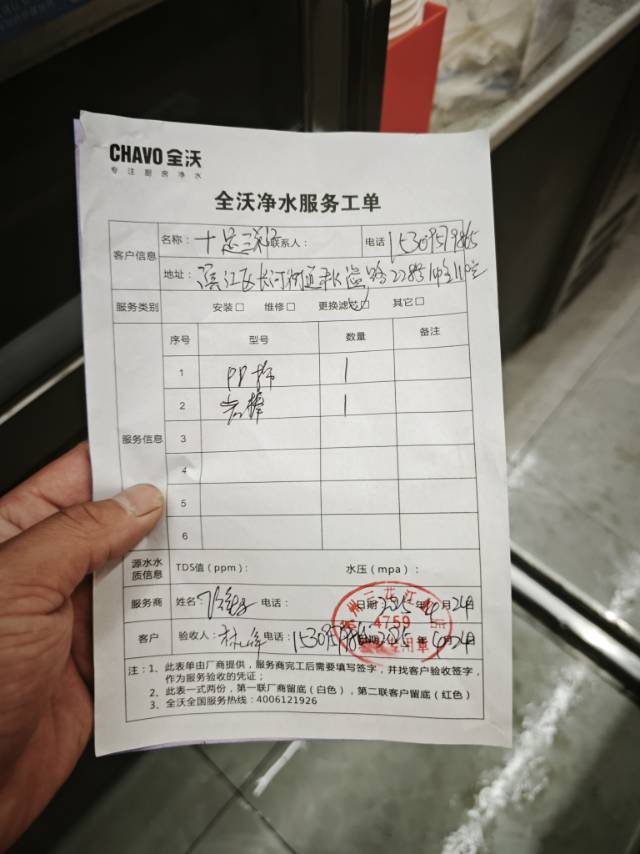 CHAVO 全沃
专注厨房净水
全沃净水服务工单
客户信息
名称： 十足三 联系人： 电话
地址：滨江区长河街道 路228号 1
服务类别 安装□ 维修□ 更换滤芯☑ 其它□
服务信息
序号 型号 数量 备注
1 PP棉 1
2 炭棒 1
3
4
5
6
源水水质信息 TDS值（ppm）： 水压（mpa）：
服务商 姓名： 电话： 日期 2025 年 10 月 24日
客户 验收人： 林峰 电话： 日期 2025 年 10 24日
4759
注：1、此表单由厂商提供，服务商完工后需要填写签字，并找客户验收签字，
作为服务验收的凭证；
2、此表一式两份，第一联厂商留底（白色），第二联客户留底（红色）
3、全沃全国服务热线：4006121926